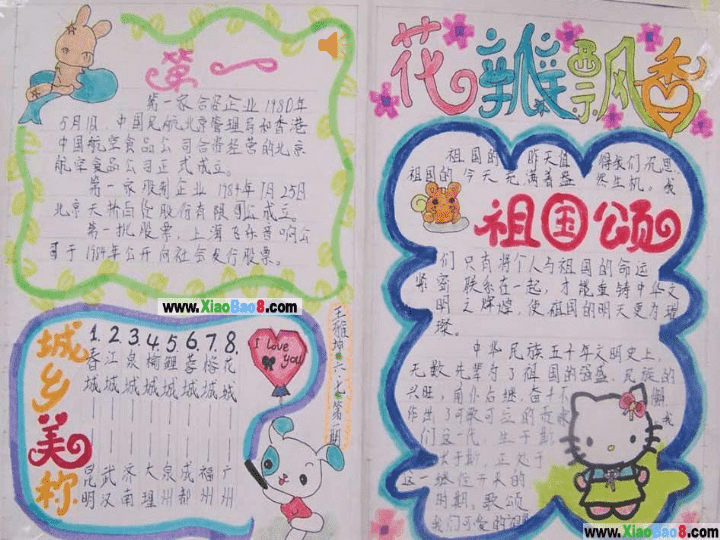 第一
第一家合资企业 1980年
5月1日,中国民航北京管理局和香港
中国航空食品公司合资经营的北京
航空食品公司正式成立。
第一家股制企业 1984年7月25日
北京天桥百货股份有限公司成立。
第一批股票,上海飞乐音响公
司于1984年公开向社会发行股票。
www.XiaoBao8.com
城乡美称
1. 2. 3. 4. 5. 6. 7. 8.
春 江 泉 榆 鲤 蓉 榕 花
城 城 城 城 城 城 城 城
昆 武 济 大 泉 成 福 广
明 汉 南 理 州 都 州 州
I love
you
花瓣飘香
祖国的 昨天值 得我们沉思
祖国的今天充满着盎 然生机。我
祖国颂
们只有将个人与祖国的命运
紧密联系在一起,才能重铸中华文
明之辉煌,使祖国的明天更为璀
璨。
中华民族五千年文明史上,
无数先辈为了祖国的强盛,民族的
兴旺,前仆后继,奋
作出了可歌可泣的贡献 我
们这一代,生于斯
长于斯,正处于
这一继往开来的
时期,歌颂
我们可爱的祖国
www.XiaoBao8.com